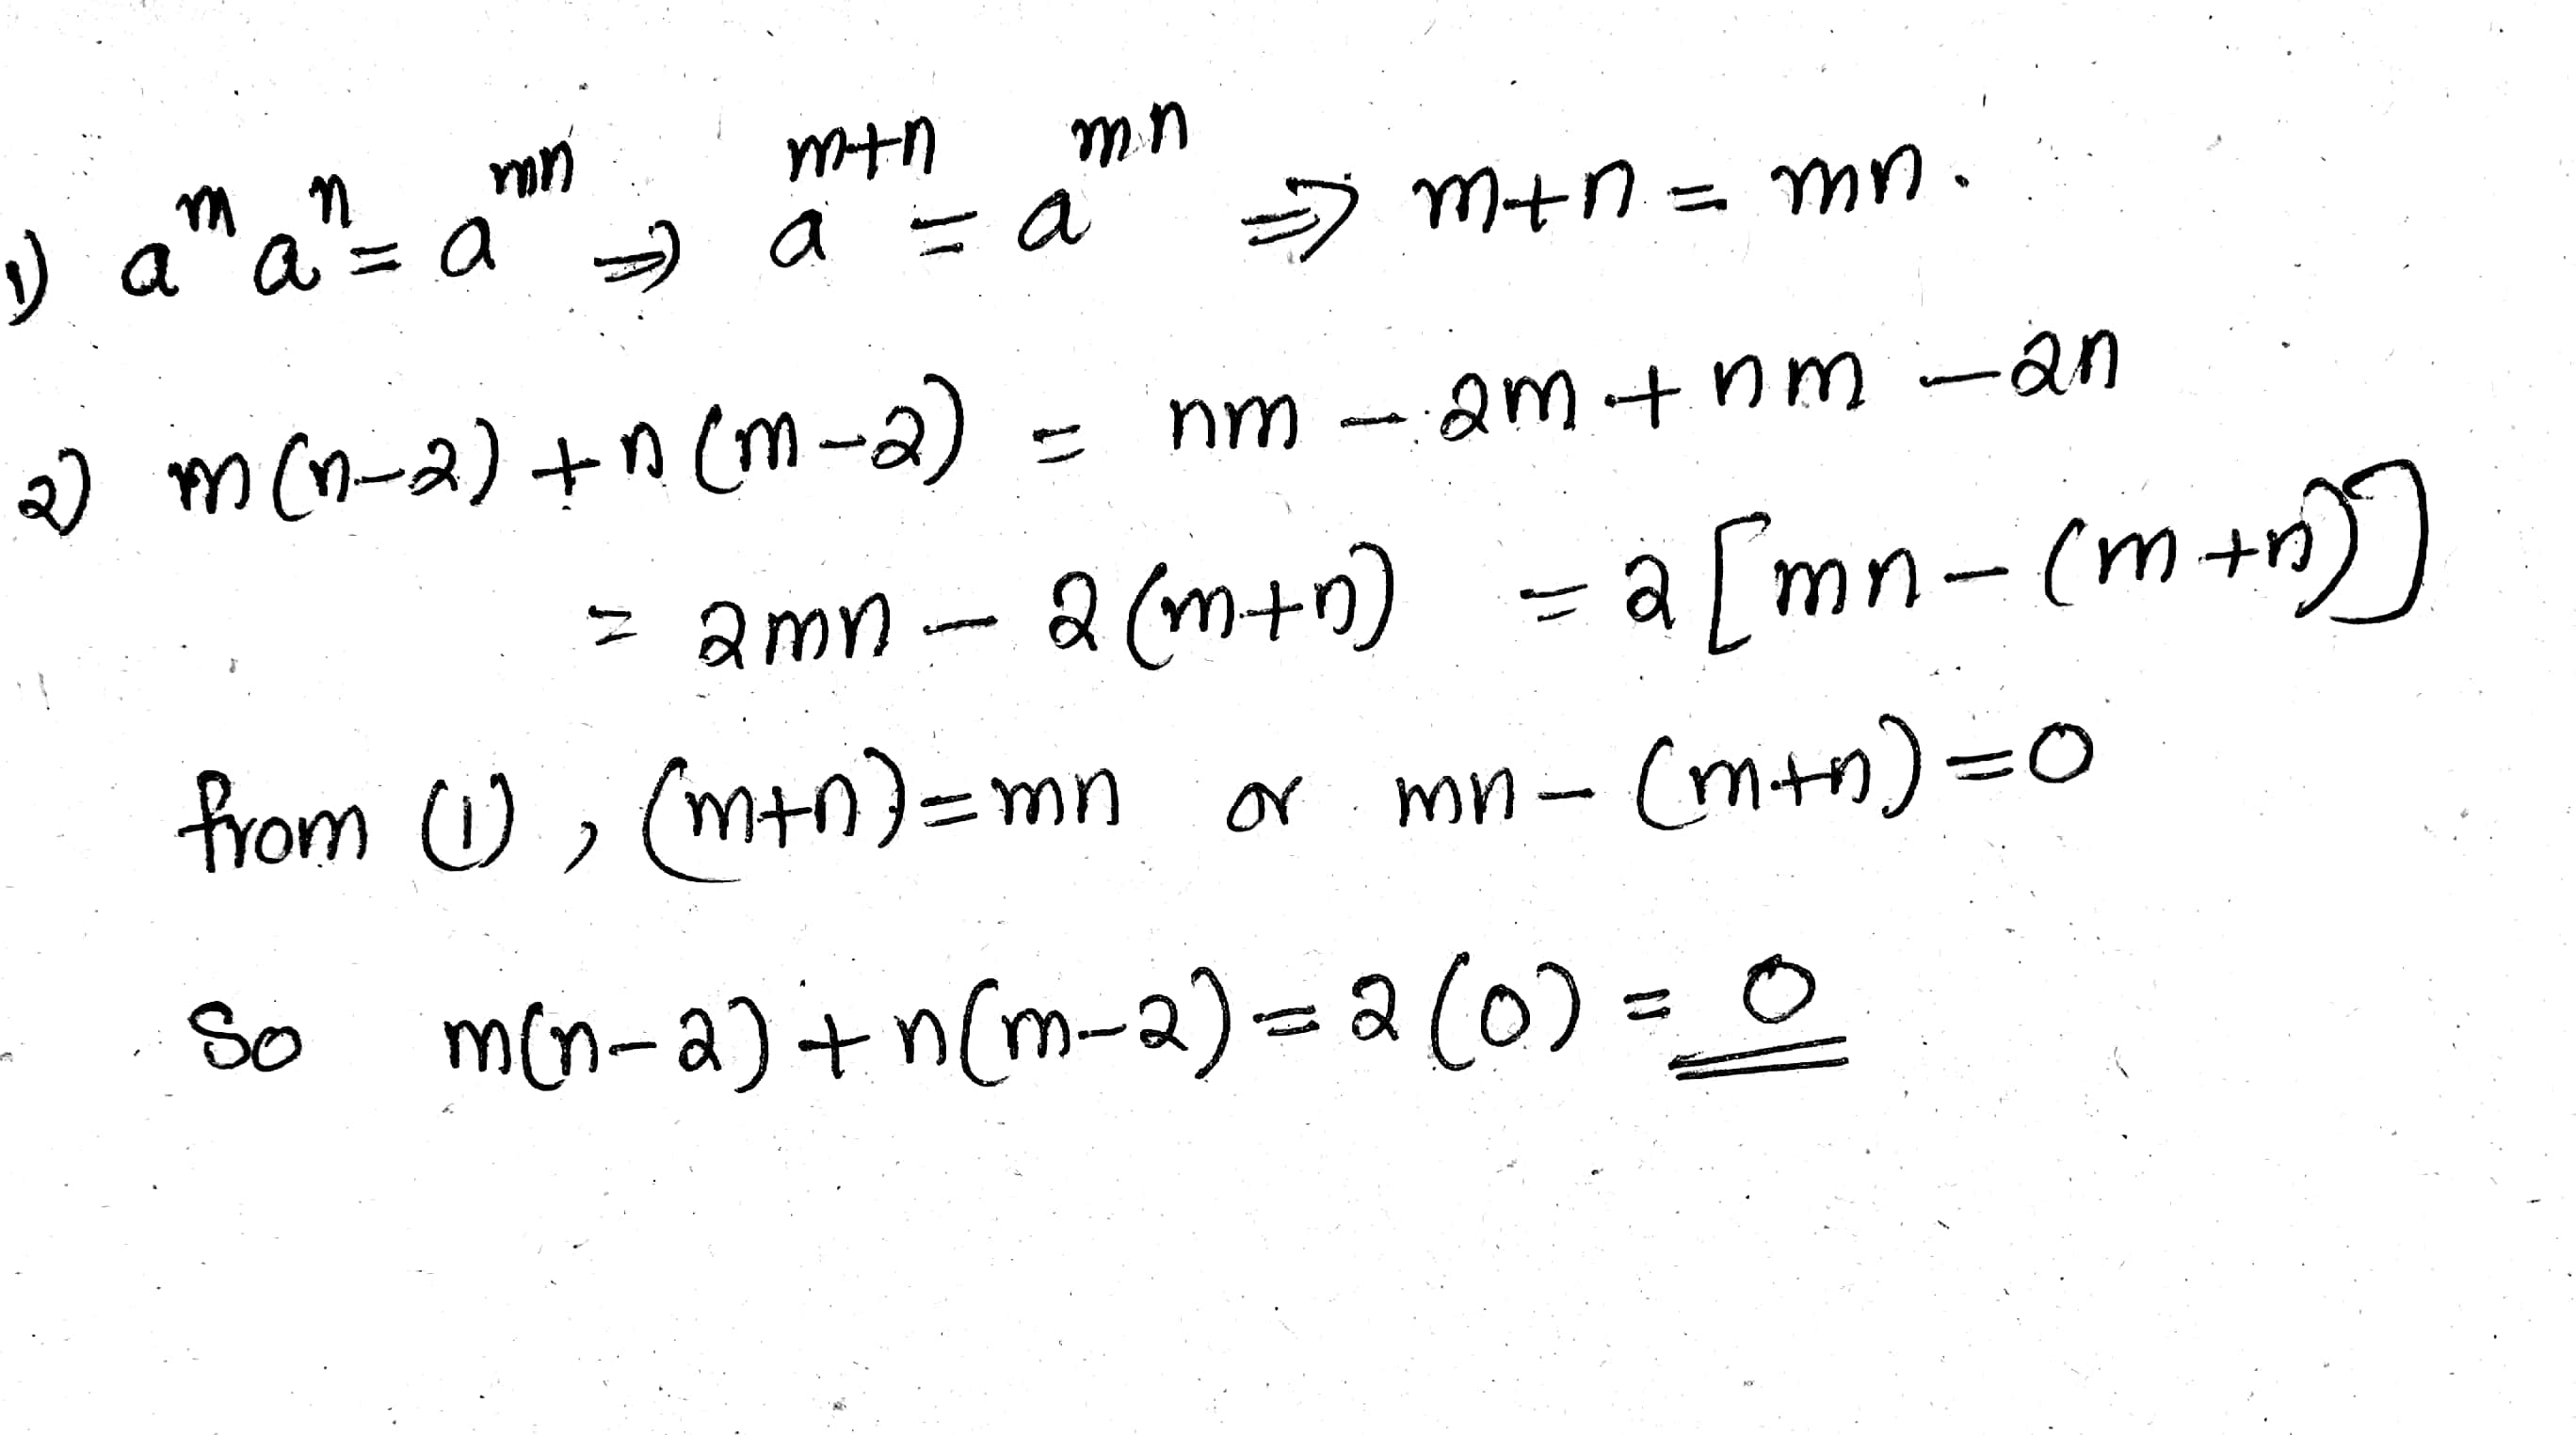 1) a^m a^n = a^mn ⇒ a^m+n = a^mn ⇒ m+n = mn.
2) m(n-2) + n(m-2) = nm - 2m + nm - 2n
= 2mn - 2(m+n) = 2[mn - (m+n)]
from (1), (m+n) = mn or mn - (m+n) = 0
So m(n-2) + n(m-2) = 2(0) = 0